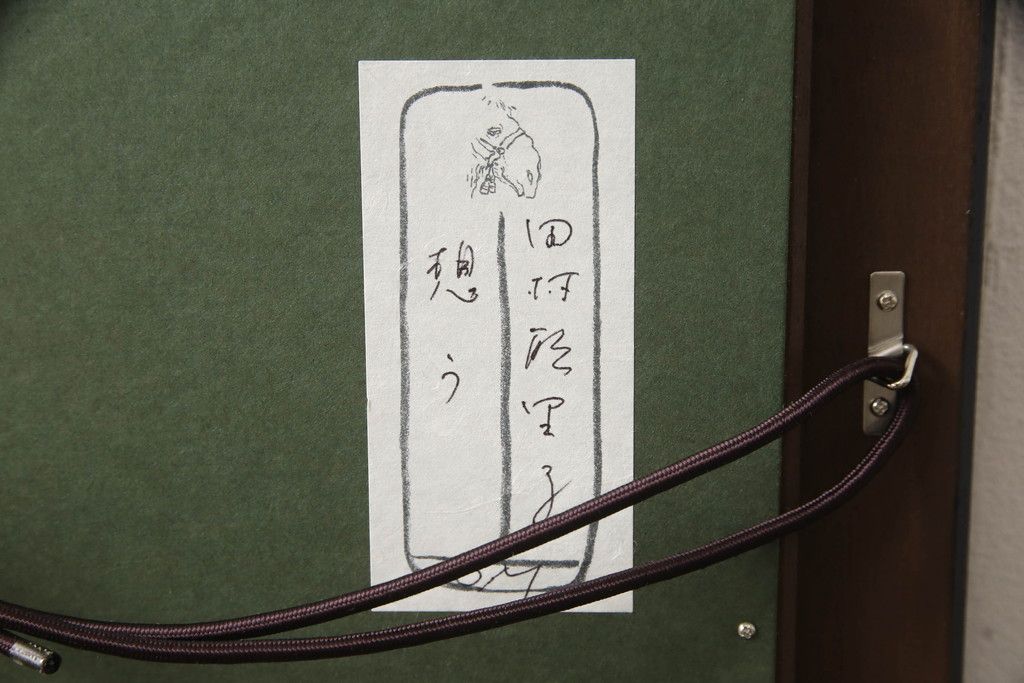 田村能里子
想う